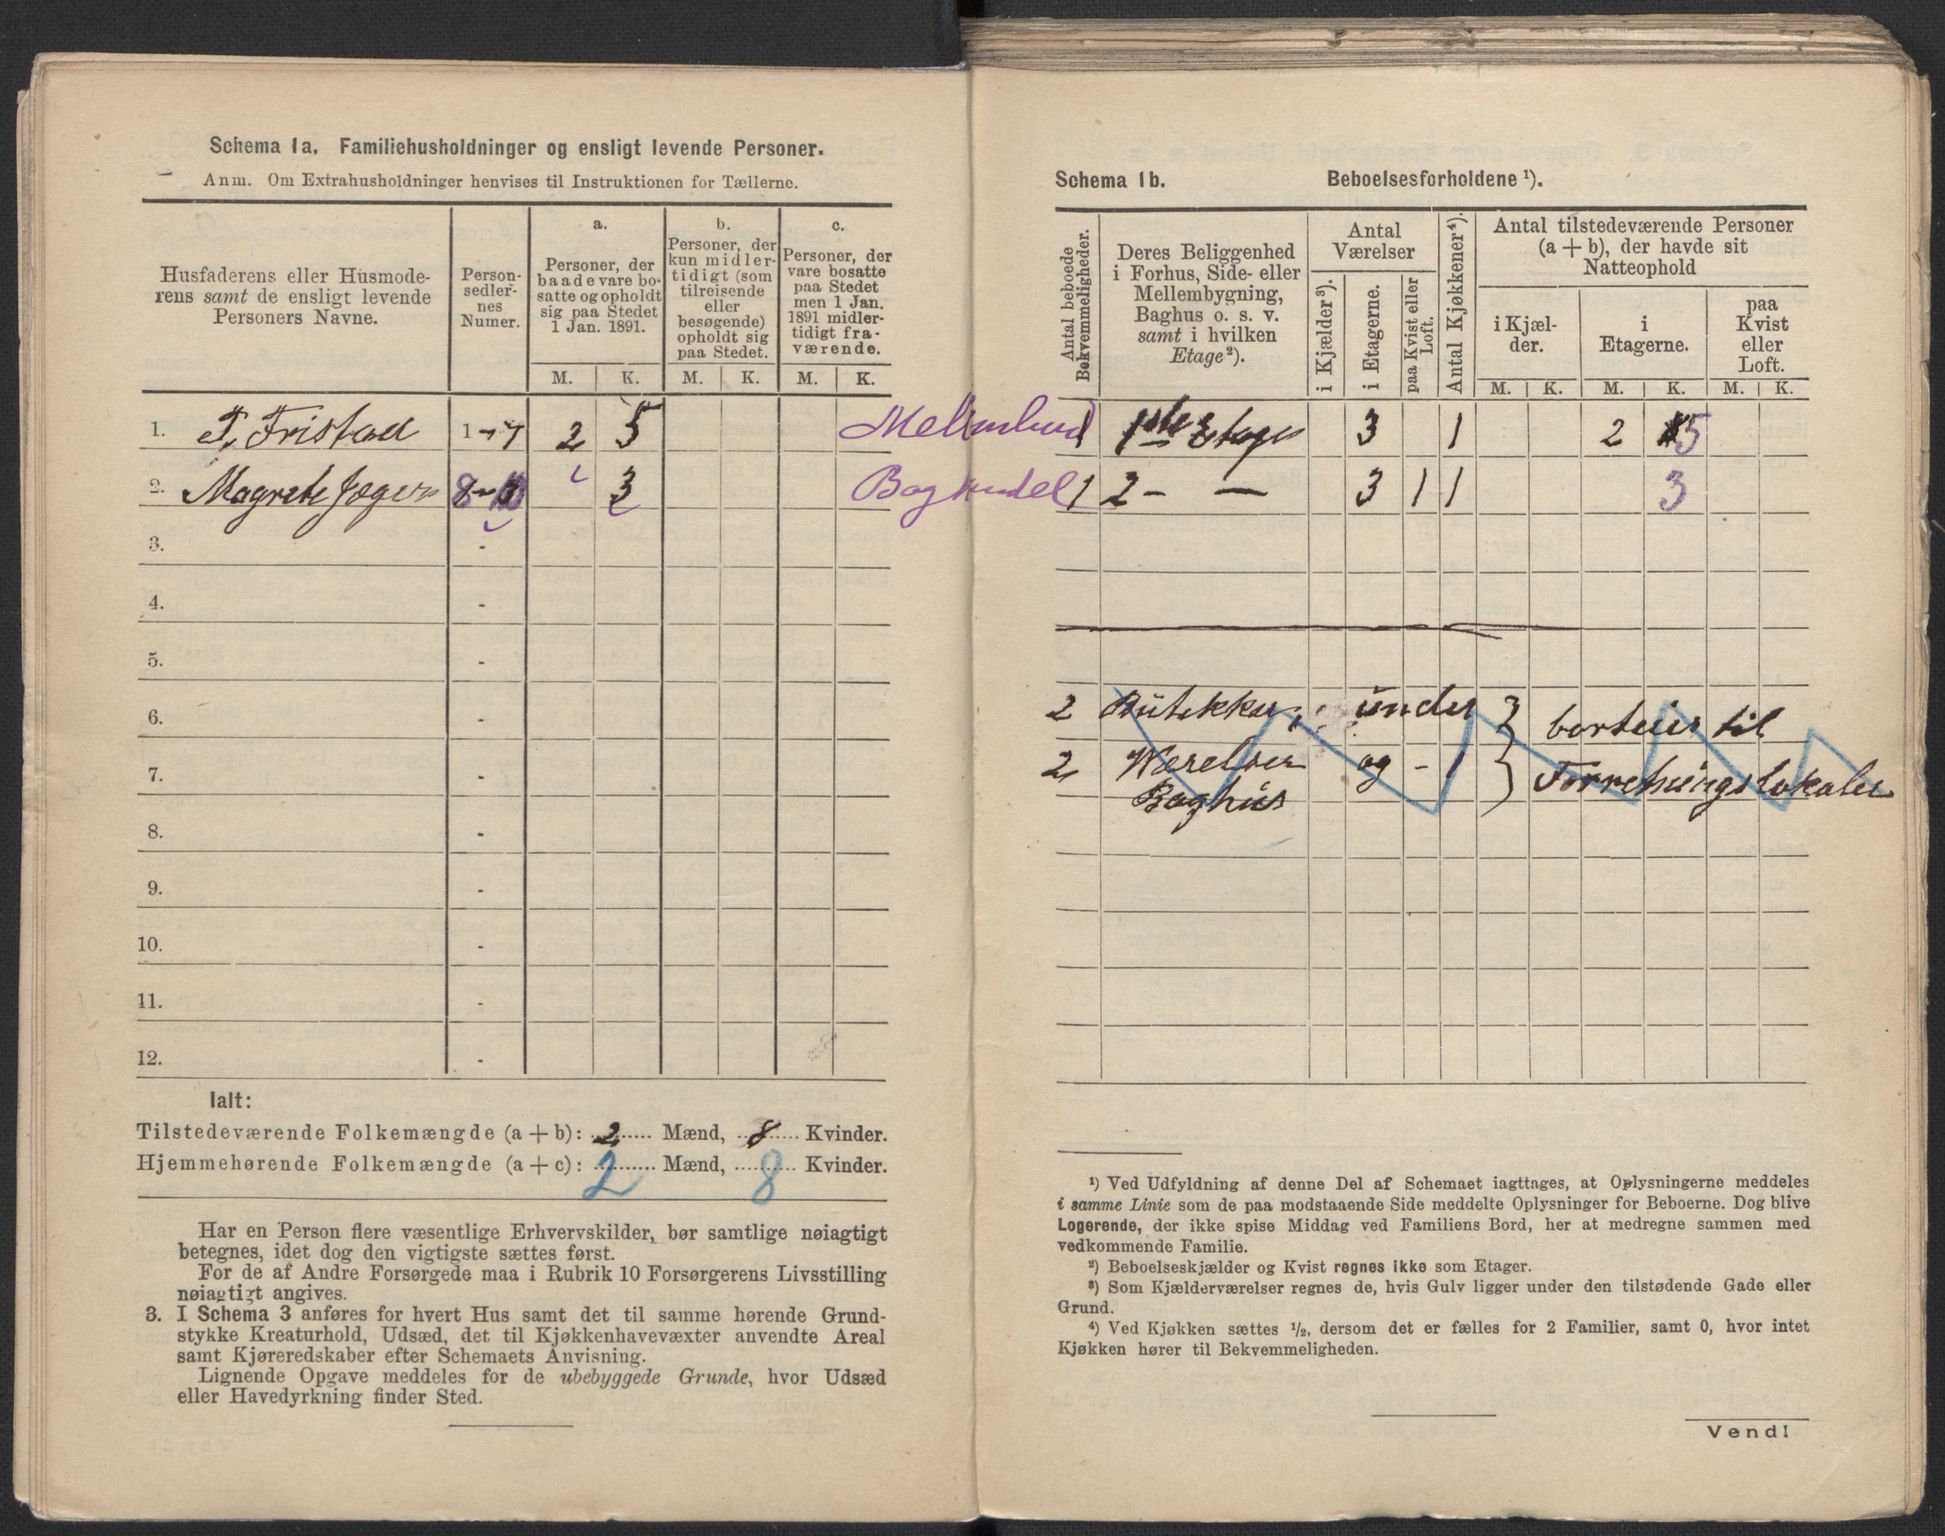 Schema 1a. Familiehusholdninger og ensligt levende Personer.
Anm. Om Extrahusholdninger henvises til Instruktionen for Tællerne.
Husfaderens eller Husmode-
rens samt de ensligt levende
Personers Navne.
Person-
sedler-
nes
Numer.
a.
Personer, der
baade vare bo-
satte og opholdt
sig paa Stedet
1 Jan. 1891.
b.
Personer, der
kun midler-
tidigt (som
tilreisende
eller
besøgende)
opholdt sig
paa Stedet.
c.
Personer, der
vare bosatte
paa Stedet
men 1 Jan.
1891 midler-
tidigt fra-
værende.
M. K. M. K. M. K.
1. T. Fristad 1-7 2 5
2. Magrete Jæger 8-10 3
3. -
4. -
5. -
6. -
7. -
8. -
9. -
10. -
11. -
12. -
Ialt:
Tilstedeværende Folkemængde (a + b): 2 Mænd, 8 Kvinder.
Hjemmehørende Folkemængde (a + c): 2 Mænd, 8 Kvinder.
Har en Person flere væsentlige Erhvervskilder, bør samtlige nøiagtigt
betegnes, idet dog den vigtigste sættes først.
For de af Andre Forsørgede maa i Rubrik 10 Forsørgerens Livsstilling
nøiagtigt angives.
3. I Schema 3 anføres for hvert Hus samt det til samme hørende Grund-
stykke Kreaturhold, Udsæd, det til Kjøkkenhavevæxter anvendte Areal
samt Kjøreredskaber efter Schemaets Anvisning.
Lignende Opgave meddeles for de ubebyggede Grunde, hvor Udsæd
eller Havedyrkning finder Sted.
Schema 1b. Beboelsesforholdene ¹).
Antal beboede
Bekvemmeligheder.
Deres Beliggenhed
i Forhus, Side- eller
Mellembygning,
Baghus o. s. v.
samt i hvilken
Etage ²).
Antal
Værelser
i Kjælder ³).
i Etagerne.
paa Kvist eller
Loft.
Antal Kjøkkener ⁴).
Antal tilstedeværende Personer
(a + b), der havde sit
Natteophold
i Kjæl-
der.
i
Etagerne.
paa
Kvist
eller
Loft.
M. K. M. K. M. K.
1 1ste Etage 3 1 2 5
1 2 - - 3 1 1 3
2 Butikker, under } borteies til
2 Værelser og - 1 } Forretningslokaler
Baghus
¹) Ved Udfyldning af denne Del af Schemaet iagttages, at Oplysningerne meddeles
i samme Linie som de paa modstaaende Side meddelte Oplysninger for Beboerne. Dog blive
Logerende, der ikke spise Middag ved Familiens Bord, her at medregne sammen med
vedkommende Familie.
²) Beboelseskjælder og Kvist regnes ikke som Etager.
³) Som Kjælderværelser regnes de, hvis Gulv ligger under den tilstødende Gade eller
Grund.
⁴) Ved Kjøkken sættes ¹/₂, dersom det er fælles for 2 Familier, samt 0, hvor intet
Kjøkken hører til Bekvemmeligheden.
Vend!